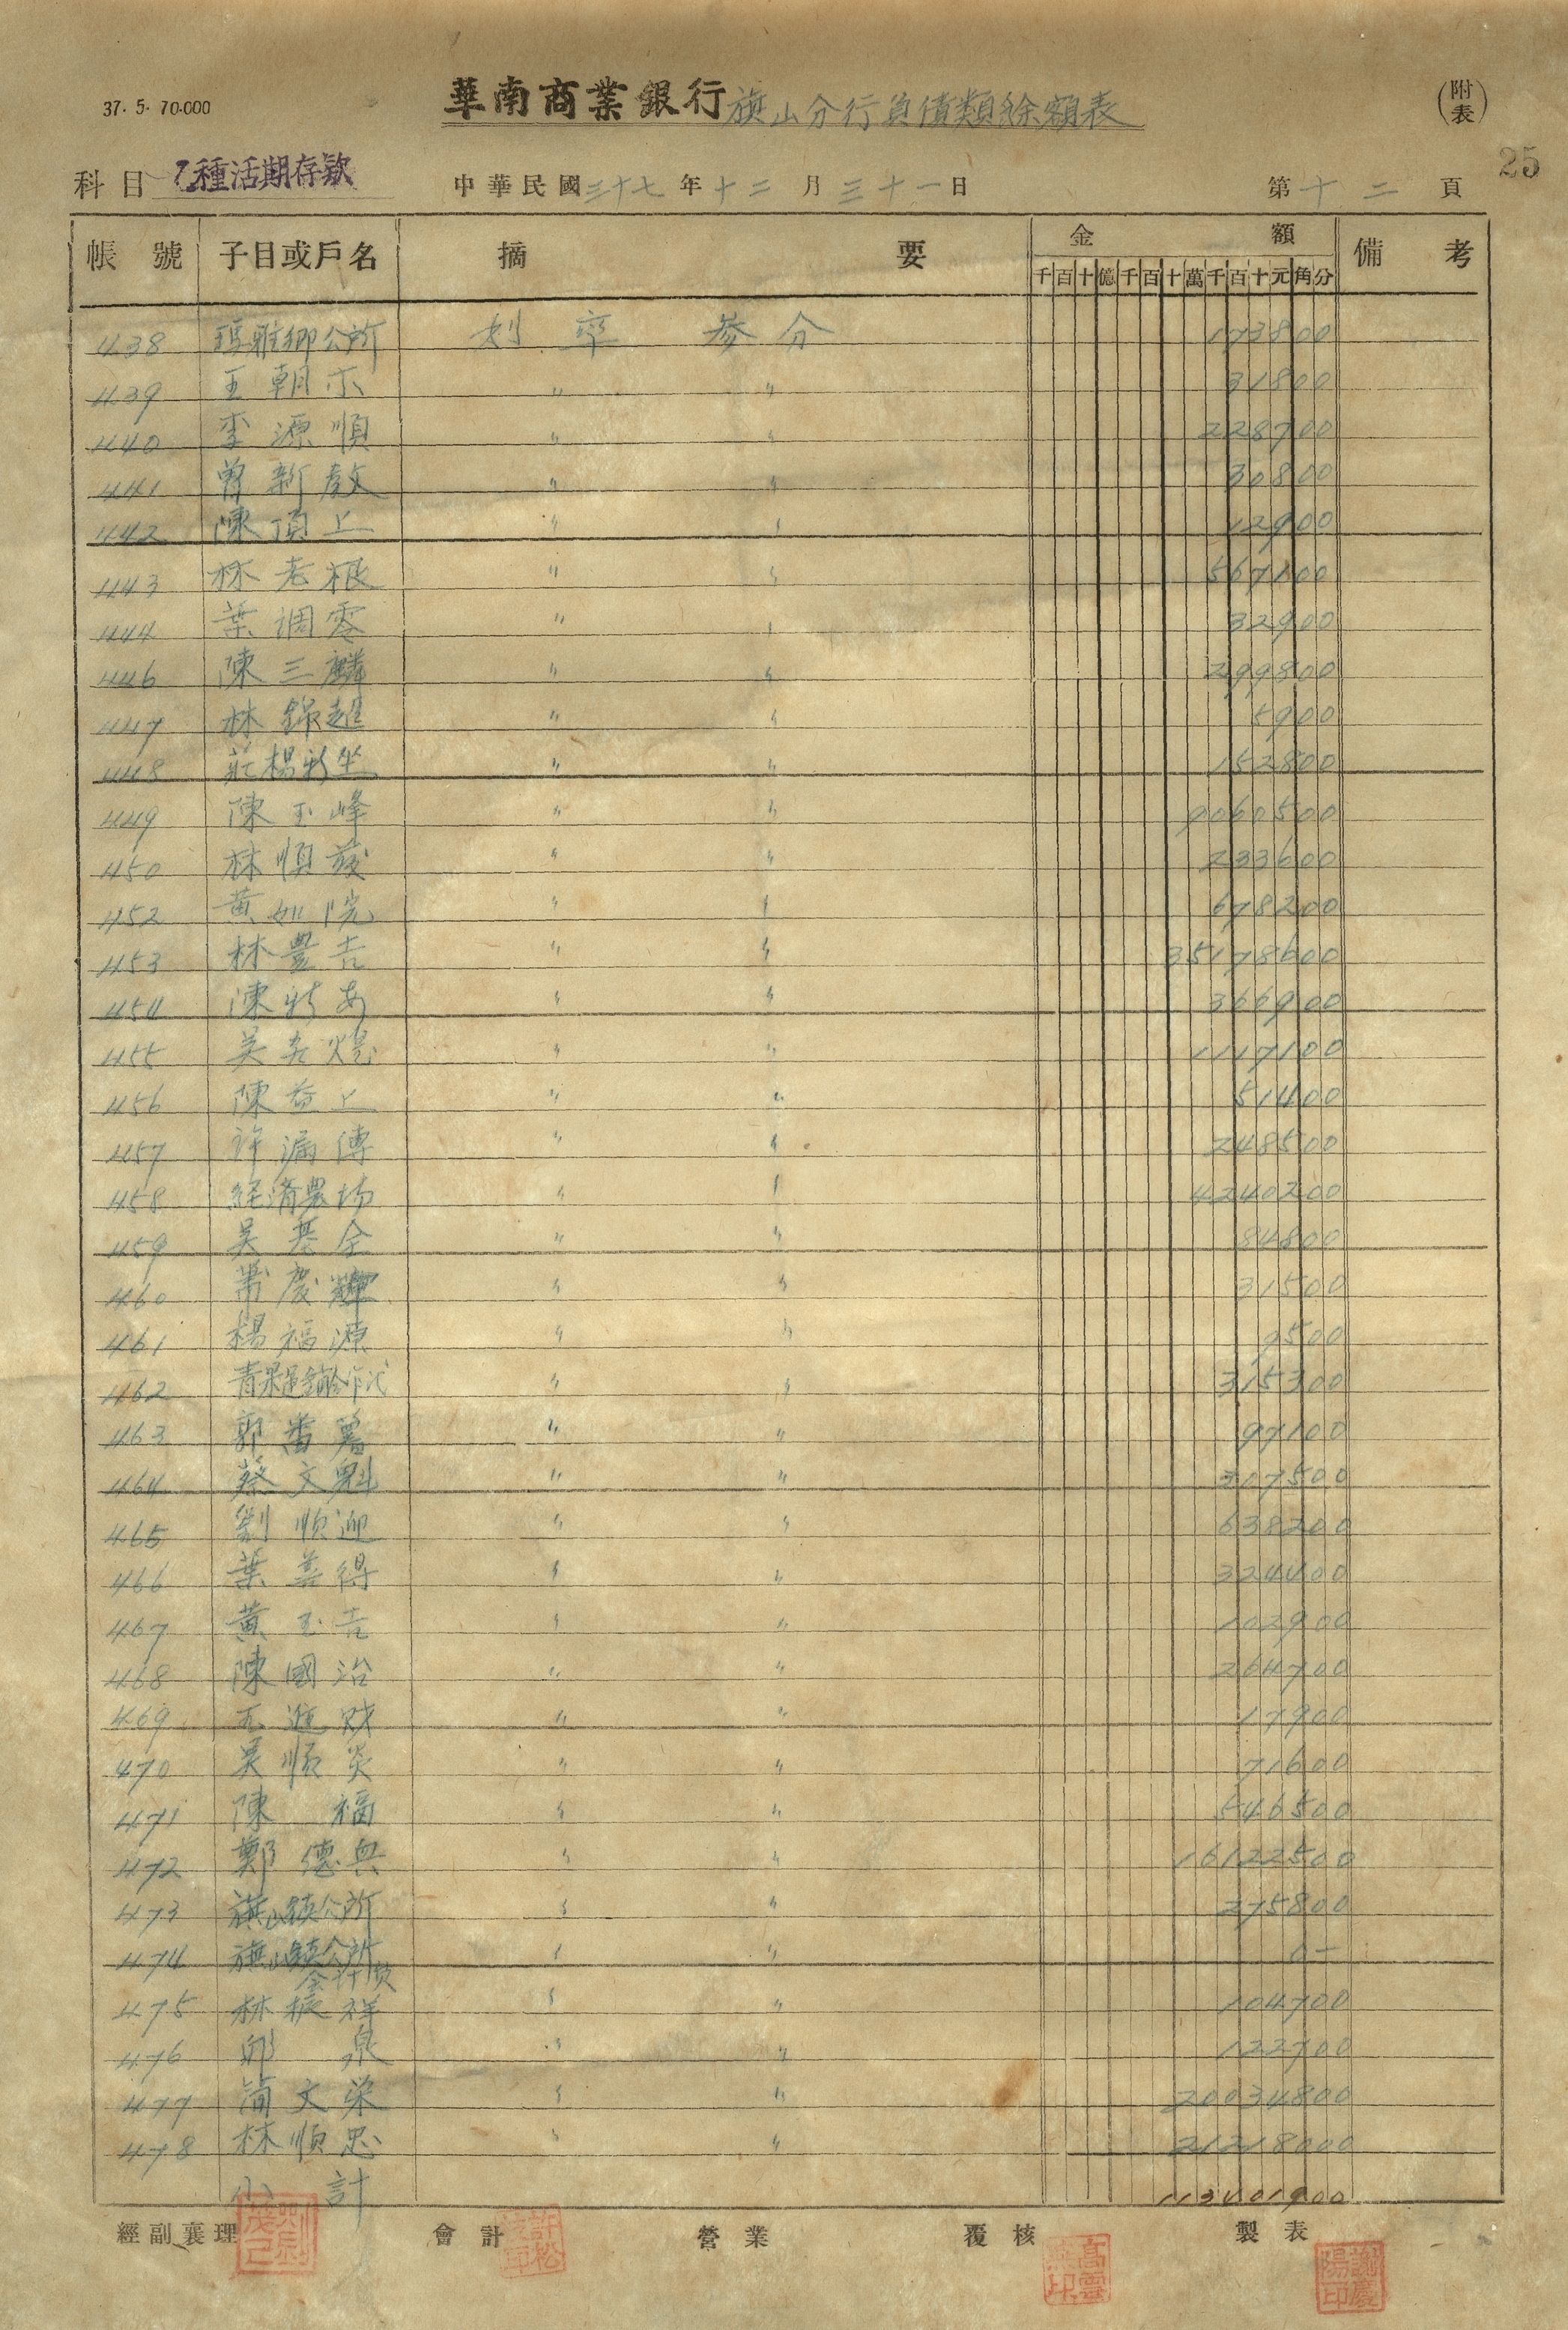 37. 5. 70.000
華南商業銀行旗山分行負債類餘額表
(附表)
25
科目 乙種活期存款 中華民國三十七年十二月三十一日 第十二頁
帳號 子目或戶名 摘要 金額 備考
千百十億千百十萬千百十元角分
438 瑪雅鄉公所 利率 參分 173800
439 王朝木 〃 〃 31800
440 李源順 〃 〃 228700
441 曾新教 〃 〃 30800
442 陳頂上 〃 〃 12900
443 林老根 〃 〃 567100
444 葉調零 〃 〃 32900
446 陳三麟 〃 〃 299800
447 林錦超 〃 〃 5900
448 莊楊新坐 〃 〃 152800
449 陳玉峰 〃 〃 9060500
450 林順發 〃 〃 233600
452 黃如院 〃 〃 678200
453 林豊吉 〃 〃 35178600
454 陳新 〃 〃 366900
455 吳 〃 〃 1117100
456 陳益上 〃 〃 51400
457 許漏傳 〃 〃 248500
458 経済農場 〃 〃 4240200
459 吳基全 〃 〃 84800
460 蕭慶輝 〃 〃 31500
461 楊福源 〃 〃 9500
462 青果運銷合作社 〃 〃 315300
463 郭番薯 〃 〃 97100
464 蔡文魁 〃 〃 317500
465 劉順迎 〃 〃 638200
466 葉善得 〃 〃 324400
467 黃玉吉 〃 〃 102900
468 陳國治 〃 〃 264700
469 進財 〃 〃 17900
470 吳順炎 〃 〃 71600
471 陳福 〃 〃 546500
472 鄭德興 〃 〃 16122500
473 旗山鎮公所 〃 〃 275800
474 旗山鎮公所 〃 〃 0-
475 林振祥 〃 〃 104700
476 邱泉 〃 〃 122700
477 蕭文榮 〃 〃 20034800
478 林順忠 〃 〃 21218000
小計 113401900
經副襄理 會計 營業 覆核 製表